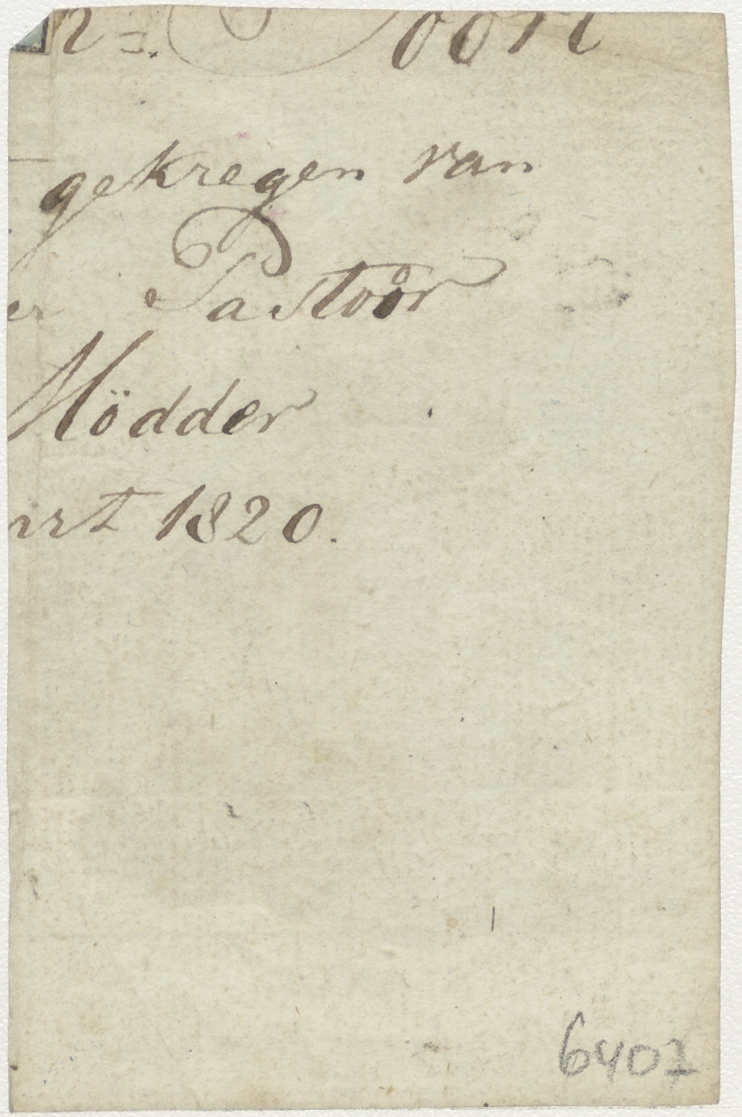 gekregen van
er Pastoor
Mödder
art 1820.
6407